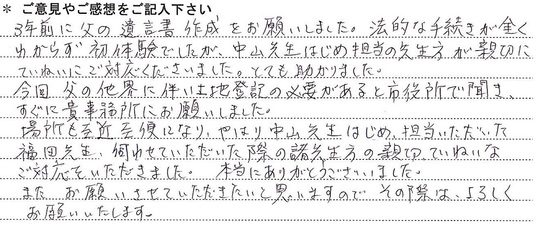 * ご意見やご感想をご記入下さい
3年前に父の遺言書作成をお願いしました。法的な手続きが全く
わからず初体験でしたが、中山先生はじめ担当の先生方が親切に
ていねいにご対応くださいました。とても助かりました。
今回父の他界に伴い土地登記の必要があると市役所で聞き、
すぐに貴事務所にお願いしました。
場所も至近至便になり、やはり中山先生はじめ、担当いただいた
福田先生、伺わせていただいた際の諸先生方の親切、ていねいな
ご対応をいただきました。本当にありがとうございました。
また、お願いさせていただきたいと思いますので その際は、よろしく
お願いいたします。